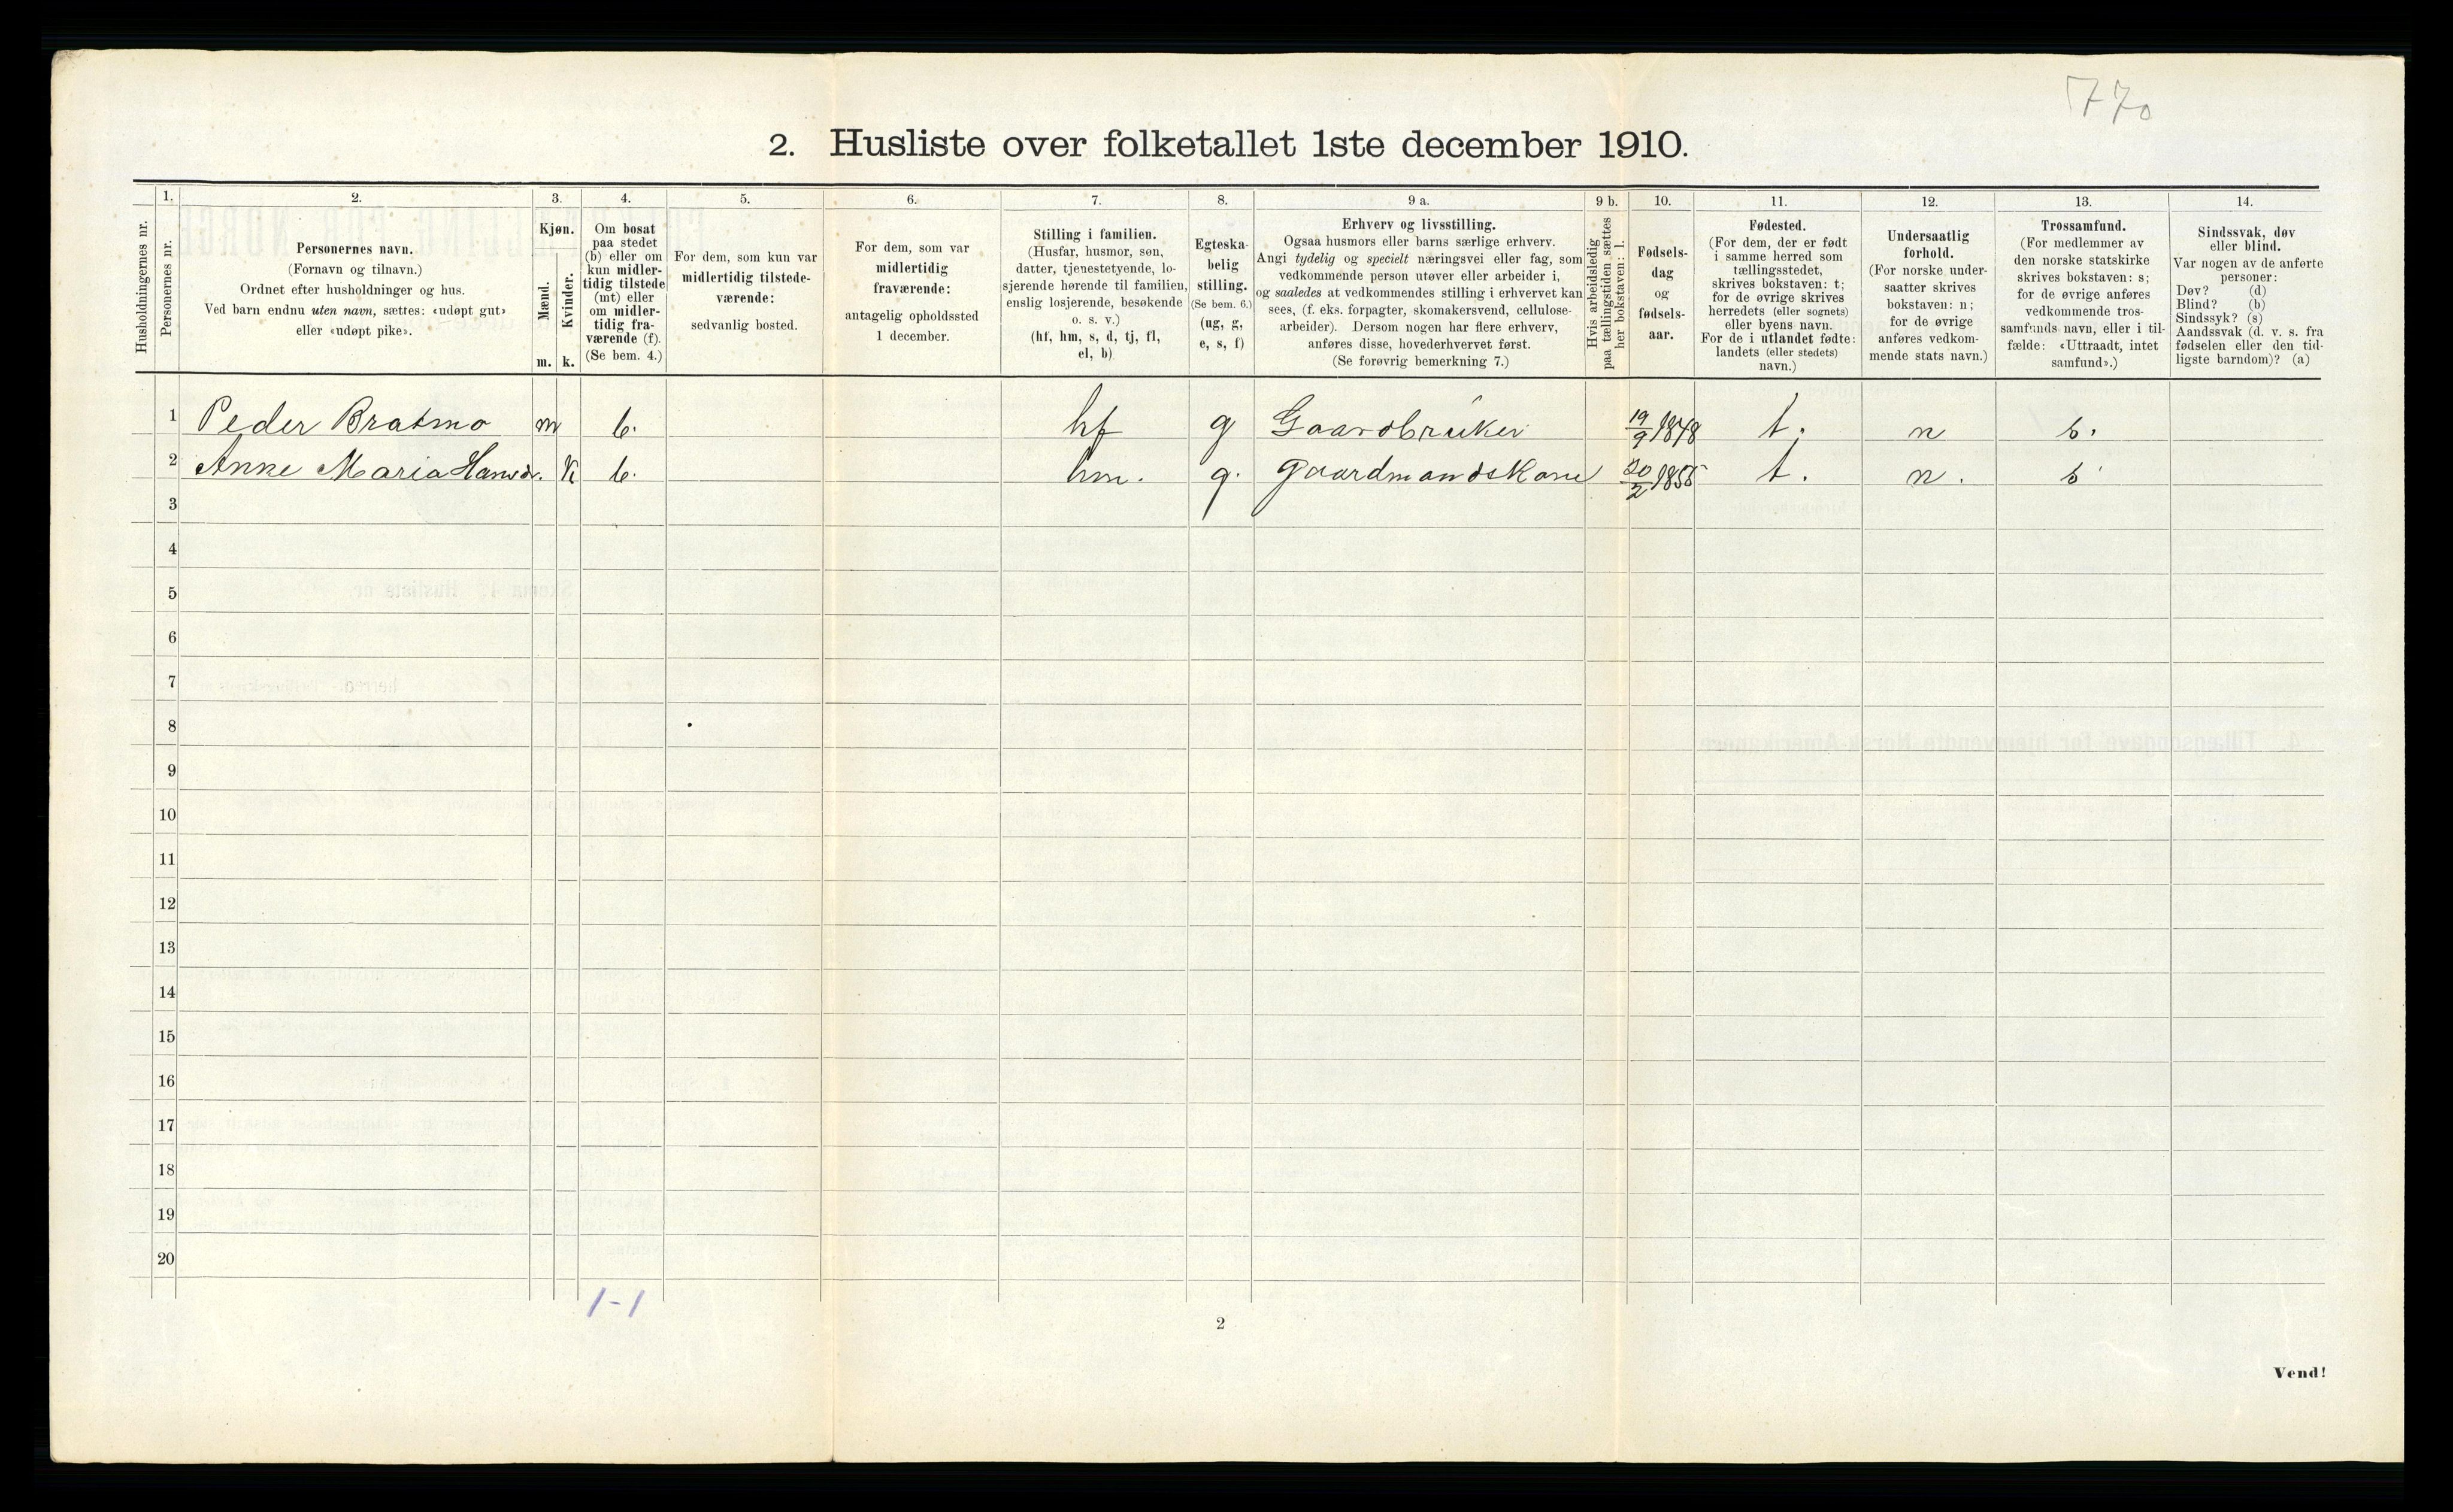 770
2. Husliste over folketallet 1ste december 1910.
Husholdningernes nr.
1.
Personernes nr.
2.
Personernes navn.
(Fornavn og tilnavn.)
Ordnet efter husholdninger og hus.
Ved barn endnu uten navn, sættes: «udøpt gut»
eller «udøpt pike».
3.
Kjøn.
Mænd.
Kvinder.
m. k.
4.
Om bosat
paa stedet
(b) eller om
kun midler-
tidig tilstede
(mt) eller
om midler-
tidig fra-
værende (f).
(Se bem. 4.)
5.
For dem, som kun var
midlertidig tilstede-
værende:
sedvanlig bosted.
6.
For dem, som var
midlertidig
fraværende:
antagelig opholdssted
1 december.
7.
Stilling i familien.
(Husfar, husmor, søn,
datter, tjenestetyende, lo-
sjerende hørende til familien,
enslig losjerende, besøkende
o. s. v.)
(hf, hm, s, d, tj, fl,
el, b)
8.
Egteska-
belig
stilling.
(Se bem. 6.)
(ug, g,
e, s, f)
9 a.
Erhverv og livsstilling.
Ogsaa husmors eller barns særlige erhverv.
Angi tydelig og specielt næringsvei eller fag, som
vedkommende person utøver eller arbeider i,
og saaledes at vedkommendes stilling i erhvervet kan
sees, (f. eks. forpagter, skomakersvend, cellulose-
arbeider). Dersom nogen har flere erhverv,
anføres disse, hovederhvervet først.
(Se forøvrig bemerkning 7.)
9 b.
Hvis arbeidsledig
paa tællingstiden sættes
her bokstaven: l.
10.
Fødsels-
dag
og
fødsels-
aar.
11.
Fødested.
(For dem, der er født
i samme herred som
tællingsstedet,
skrives bokstaven: t;
for de øvrige skrives
herredets (eller sognets)
eller byens navn.
For de i utlandet fødte:
landets (eller stedets)
navn.)
12.
Undersaatlig
forhold.
(For norske under-
saatter skrives
bokstaven: n;
for de øvrige
anføres vedkom-
mende stats navn.)
13.
Trossamfund.
(For medlemmer av
den norske statskirke
skrives bokstaven: s;
for de øvrige anføres
vedkommende tros-
samfunds navn, eller i til-
fælde: «Uttraadt, intet
samfund».)
14.
Sindssvak, døv
eller blind.
Var nogen av de anførte
personer:
Døv? (d)
Blind? (b)
Sindssyk? (s)
Aandssvak (d. v. s. fra
fødselen eller den tid-
ligste barndom)? (a)
1 Peder Bratmo m b. hf g Gaardbruker 19/9 1848 t. n s.
2 Anne Maria Hansd. K b. hm. g. gaardmandskone 20/2 1855 t. n. s
3
4
5
6
7
8
9
10
11
12
13
14
15
16
17
18
19
20
1-1
2
Vend!